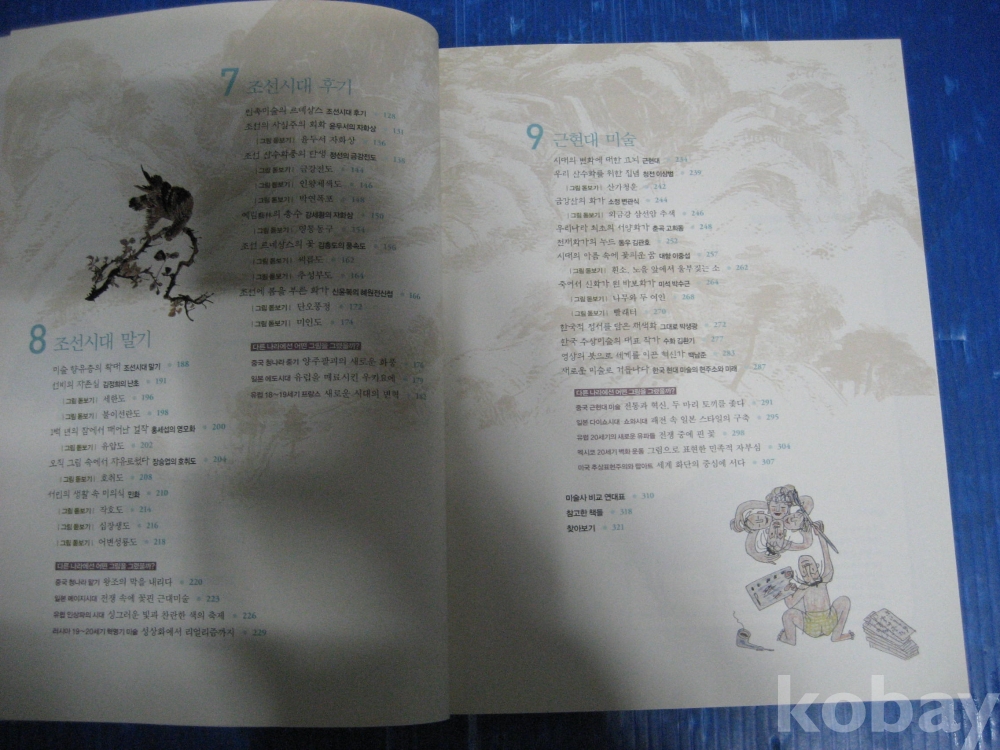 7 조선시대 후기
한국미술의 르네상스 조선시대 후기
조선의 사실주의 회화 윤두서의 자화상 131
| 그림 돋보기 | 윤두서 자화상 136
조선 산수화풍의 탄생 정선의 금강전도 138
| 그림 돋보기 | 금강전도 144
| 그림 돋보기 | 인왕제색도 146
| 그림 돋보기 | 박연폭포 148
예림 강세황의 자화상 150
| 그림 돋보기 | 영통동구 154
조선 르네상스의 꽃 김홍도의 풍속도
| 그림 돋보기 | 씨름도 162
| 그림 돋보기 | 추성부도 164
조선에 봄을 부른 화가 신윤복의 혜원전신첩 166
| 그림 돋보기 | 단오풍정 172
| 그림 돋보기 | 미인도 174
다른 나라에선 어떤 그림을 그렸을까?
중국 청나라 중기 양주팔괴의 새로운 화풍
일본 에도시대 유럽을 매료시킨 우키요에
유럽 18~19세기 프랑스 새로운 시대의 변혁
8 조선시대 말기
미술 향유층의 확대 조선시대 말기 188
선비의 자존심 김정희의 난초 191
| 그림 돋보기 | 세한도 196
| 그림 돋보기 | 불이선란도 198
1백 년의 잠에서 깨어난 걸작 홍세섭의 영모화 200
| 그림 돋보기 | 유압도 202
오직 그림 속에서 자유로웠다 장승업의 호취도 204
| 그림 돋보기 | 호취도 208
서민의 생활 속 미의식 민화 210
| 그림 돋보기 | 작호도 214
| 그림 돋보기 | 십장생도 216
| 그림 돋보기 | 어변성룡도 218
다른 나라에선 어떤 그림을 그렸을까?
중국 청나라 말기 왕조의 막을 내리다 220
일본 메이지시대 전쟁 속에 꽃핀 근대미술 223
유럽 인상파의 시대 싱그러운 빛과 찬란한 색의 축제 226
러시아 19~20세기 혁명기 미술 성상화에서 리얼리즘까지 229
9 근현대 미술
시대의 변화에 대한 고뇌 근현대 234
우리 산수화를 위한 집념 청전 이상범 239
| 그림 돋보기 | 산가청훈 242
금강산의 화가 소정 변관식 244
| 그림 돋보기 | 외금강 삼선암 추색 246
우리나라 최초의 서양화가 춘곡 고희동 248
천재화가의 누드 동우 김관호 252
시대의 아픔 속에 꽃피운 꿈 대향 이중섭 257
| 그림 돋보기 | 흰소, 노을 앞에서 울부짖는 소 262
죽어서 신화가 된 바보화가 미석 박수근 264
| 그림 돋보기 | 나무와 두 여인 268
| 그림 돋보기 | 빨래터 270
한국적 정서를 담은 채색화 그대로 박생광 272
한국 추상미술의 대표 작가 수화 김환기 277
영상과 붓으로 세계를 이끈 혁신가 백남준 283
새로운 미술로 거듭나다 한국 현대 미술의 현주소와 미래 287
다른 나라에선 어떤 그림을 그렸을까?
중국 근현대 미술 전통과 혁신, 두 마리 토끼를 좇다 291
일본 다이쇼시대 쇼와시대 패전 속 일본 스타일의 구축 295
유럽 20세기의 새로운 유파들 전쟁 중에 핀 꽃 298
멕시코 20세기 벽화 운동 그림으로 표현한 민족적 자부심 304
미국 추상표현주의와 팝아트 세계 화단의 중심에 서다 307
미술사 비교 연대표 310
참고한 책들 318
찾아보기 321
kobay